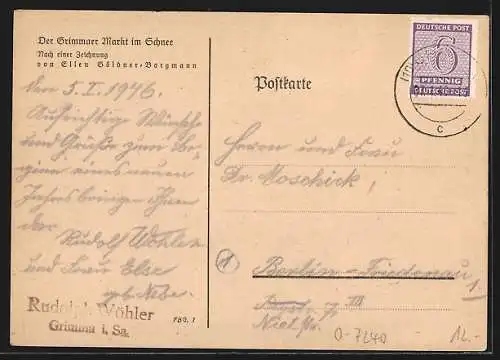 Der Grimmaer Markt im Schnee
Nach einer Zeichnung
von Ellen Göldner-Borgmann
Den 5. I. 1946.
Aufrichtige Wünsche
und Grüße zum Be-
ginn eines neuen
Jahres bringen Ihnen
Rudolf Wöhler
und Frau Else
geb.
Rudolph Wöhler
Grimma i. Sa.
Postkarte
DEUTSCHE POST
6
PFENNIG
DEUTSCHE POST
c
Herrn und Frau
Dr. Moschick,
1
Berlin-Friedenau
III
O-7240
12.-